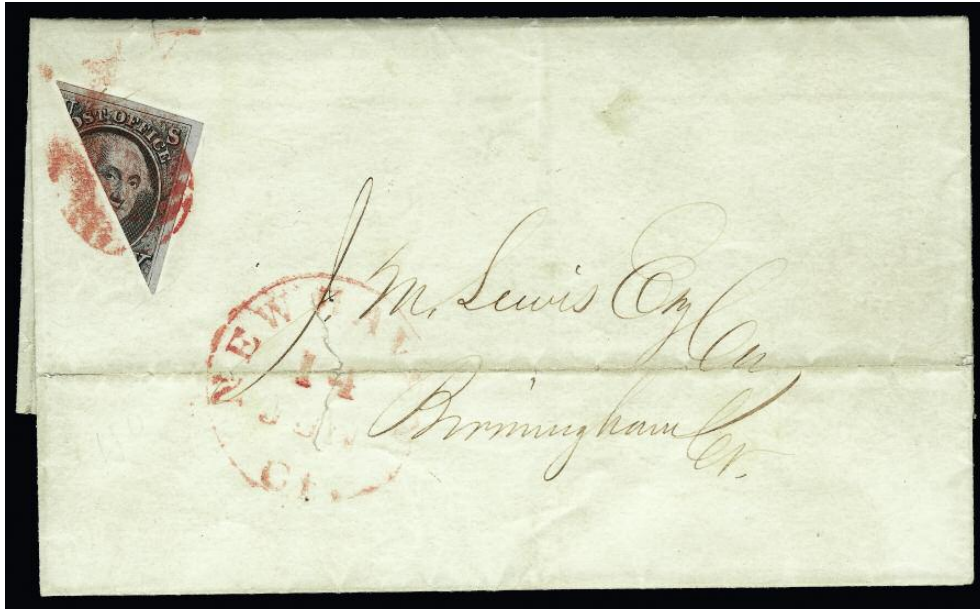 POST OFFICE
S
NEW HA
14
Ct.
J. M. Lewis Esq
Birmingham
Ct.